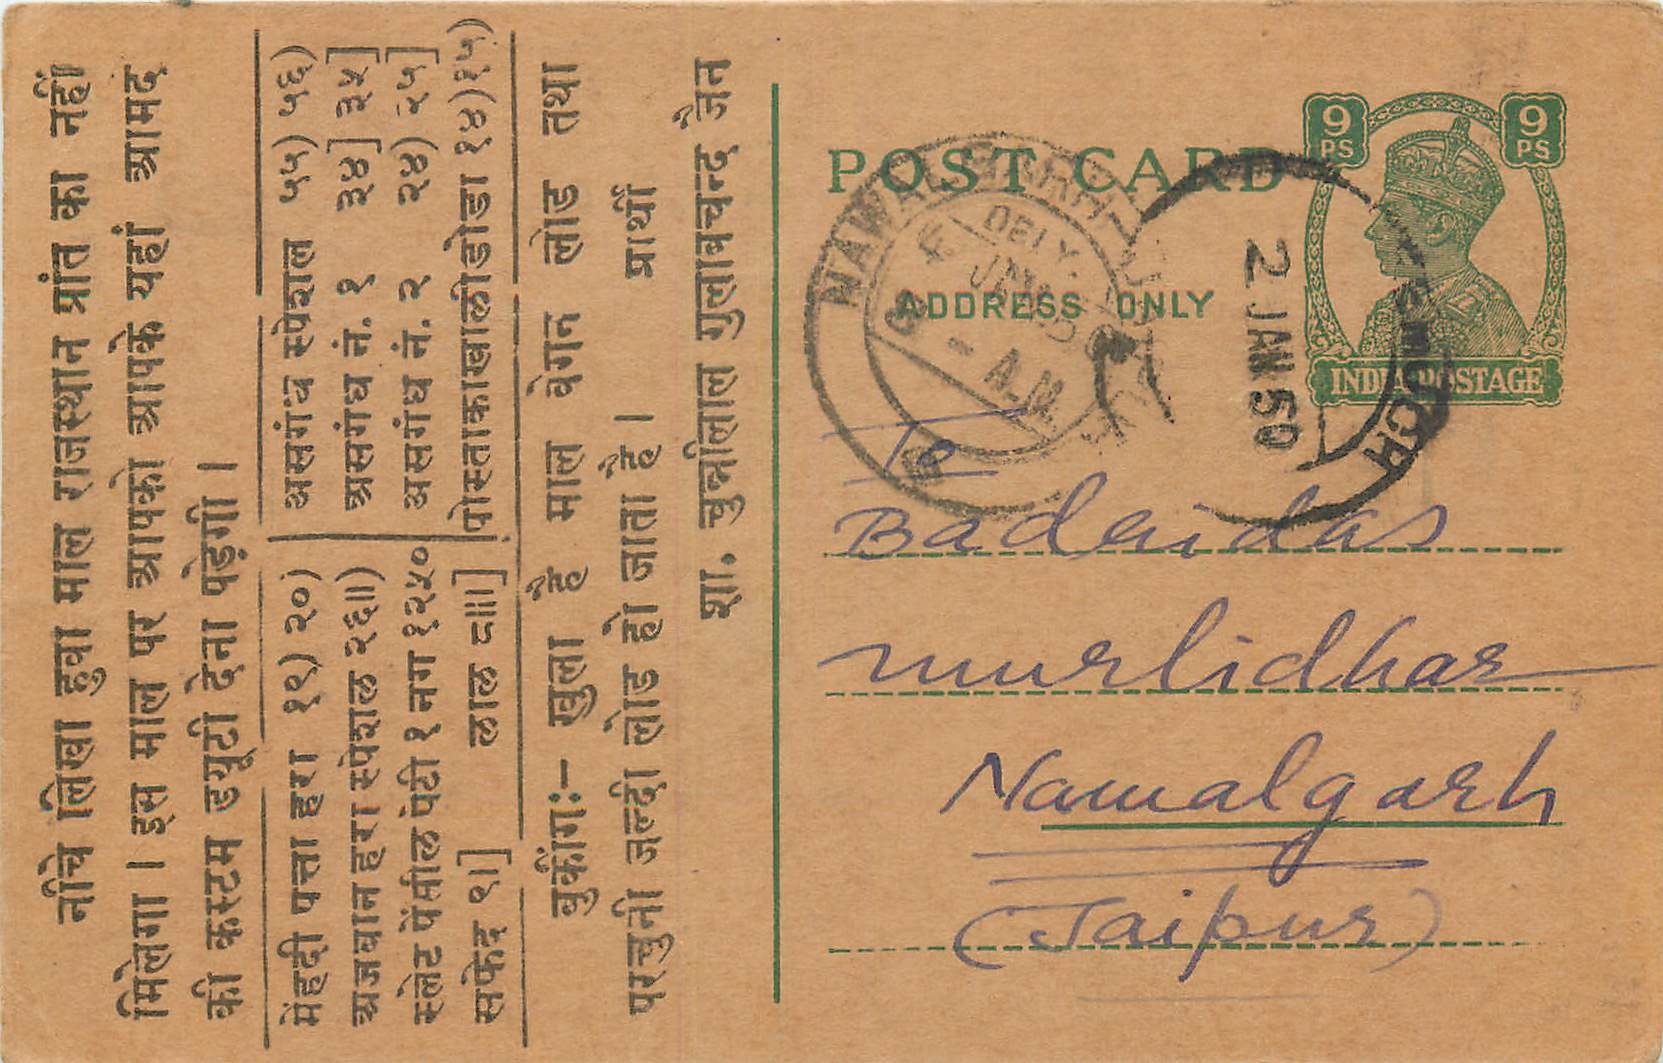 नीचे लिखा हुवा माल राजस्थान प्रांत का नहीं
मिलेगा । इस माल पर आपको आपके यहां आमद
की कस्टम ड्यूटी देना पड़ेगी ।
मेहदी पत्ता हरा १९) २०)
अजवान हरा स्पेशल २६॥)
स्लेट पेंसील पेटी १ नग १२५०
सफेद ९।] लाल ८॥।]
असगंध स्पेशल ५५) ५६)
असगंध नं. १ ३४] ३५]
असगंध नं. २ २४) २५]
पोस्ताकाखालीडोडा १४)१५)
बुकींग:- खुला है माल वेगन लोड तथा
परचुनी जल्दी लोड हो जाता है । प्रार्थी
शा. चुन्नीलाल गुलाबचन्द जैन
POST CARD
ADDRESS ONLY
9 PS 9 PS
INDIA POSTAGE
NAWALGARH
DELY.
A.M.
2 JAN 50
NEEMUCH
To
Badridas
murlidhar
Nawalgarh
(Jaipur)